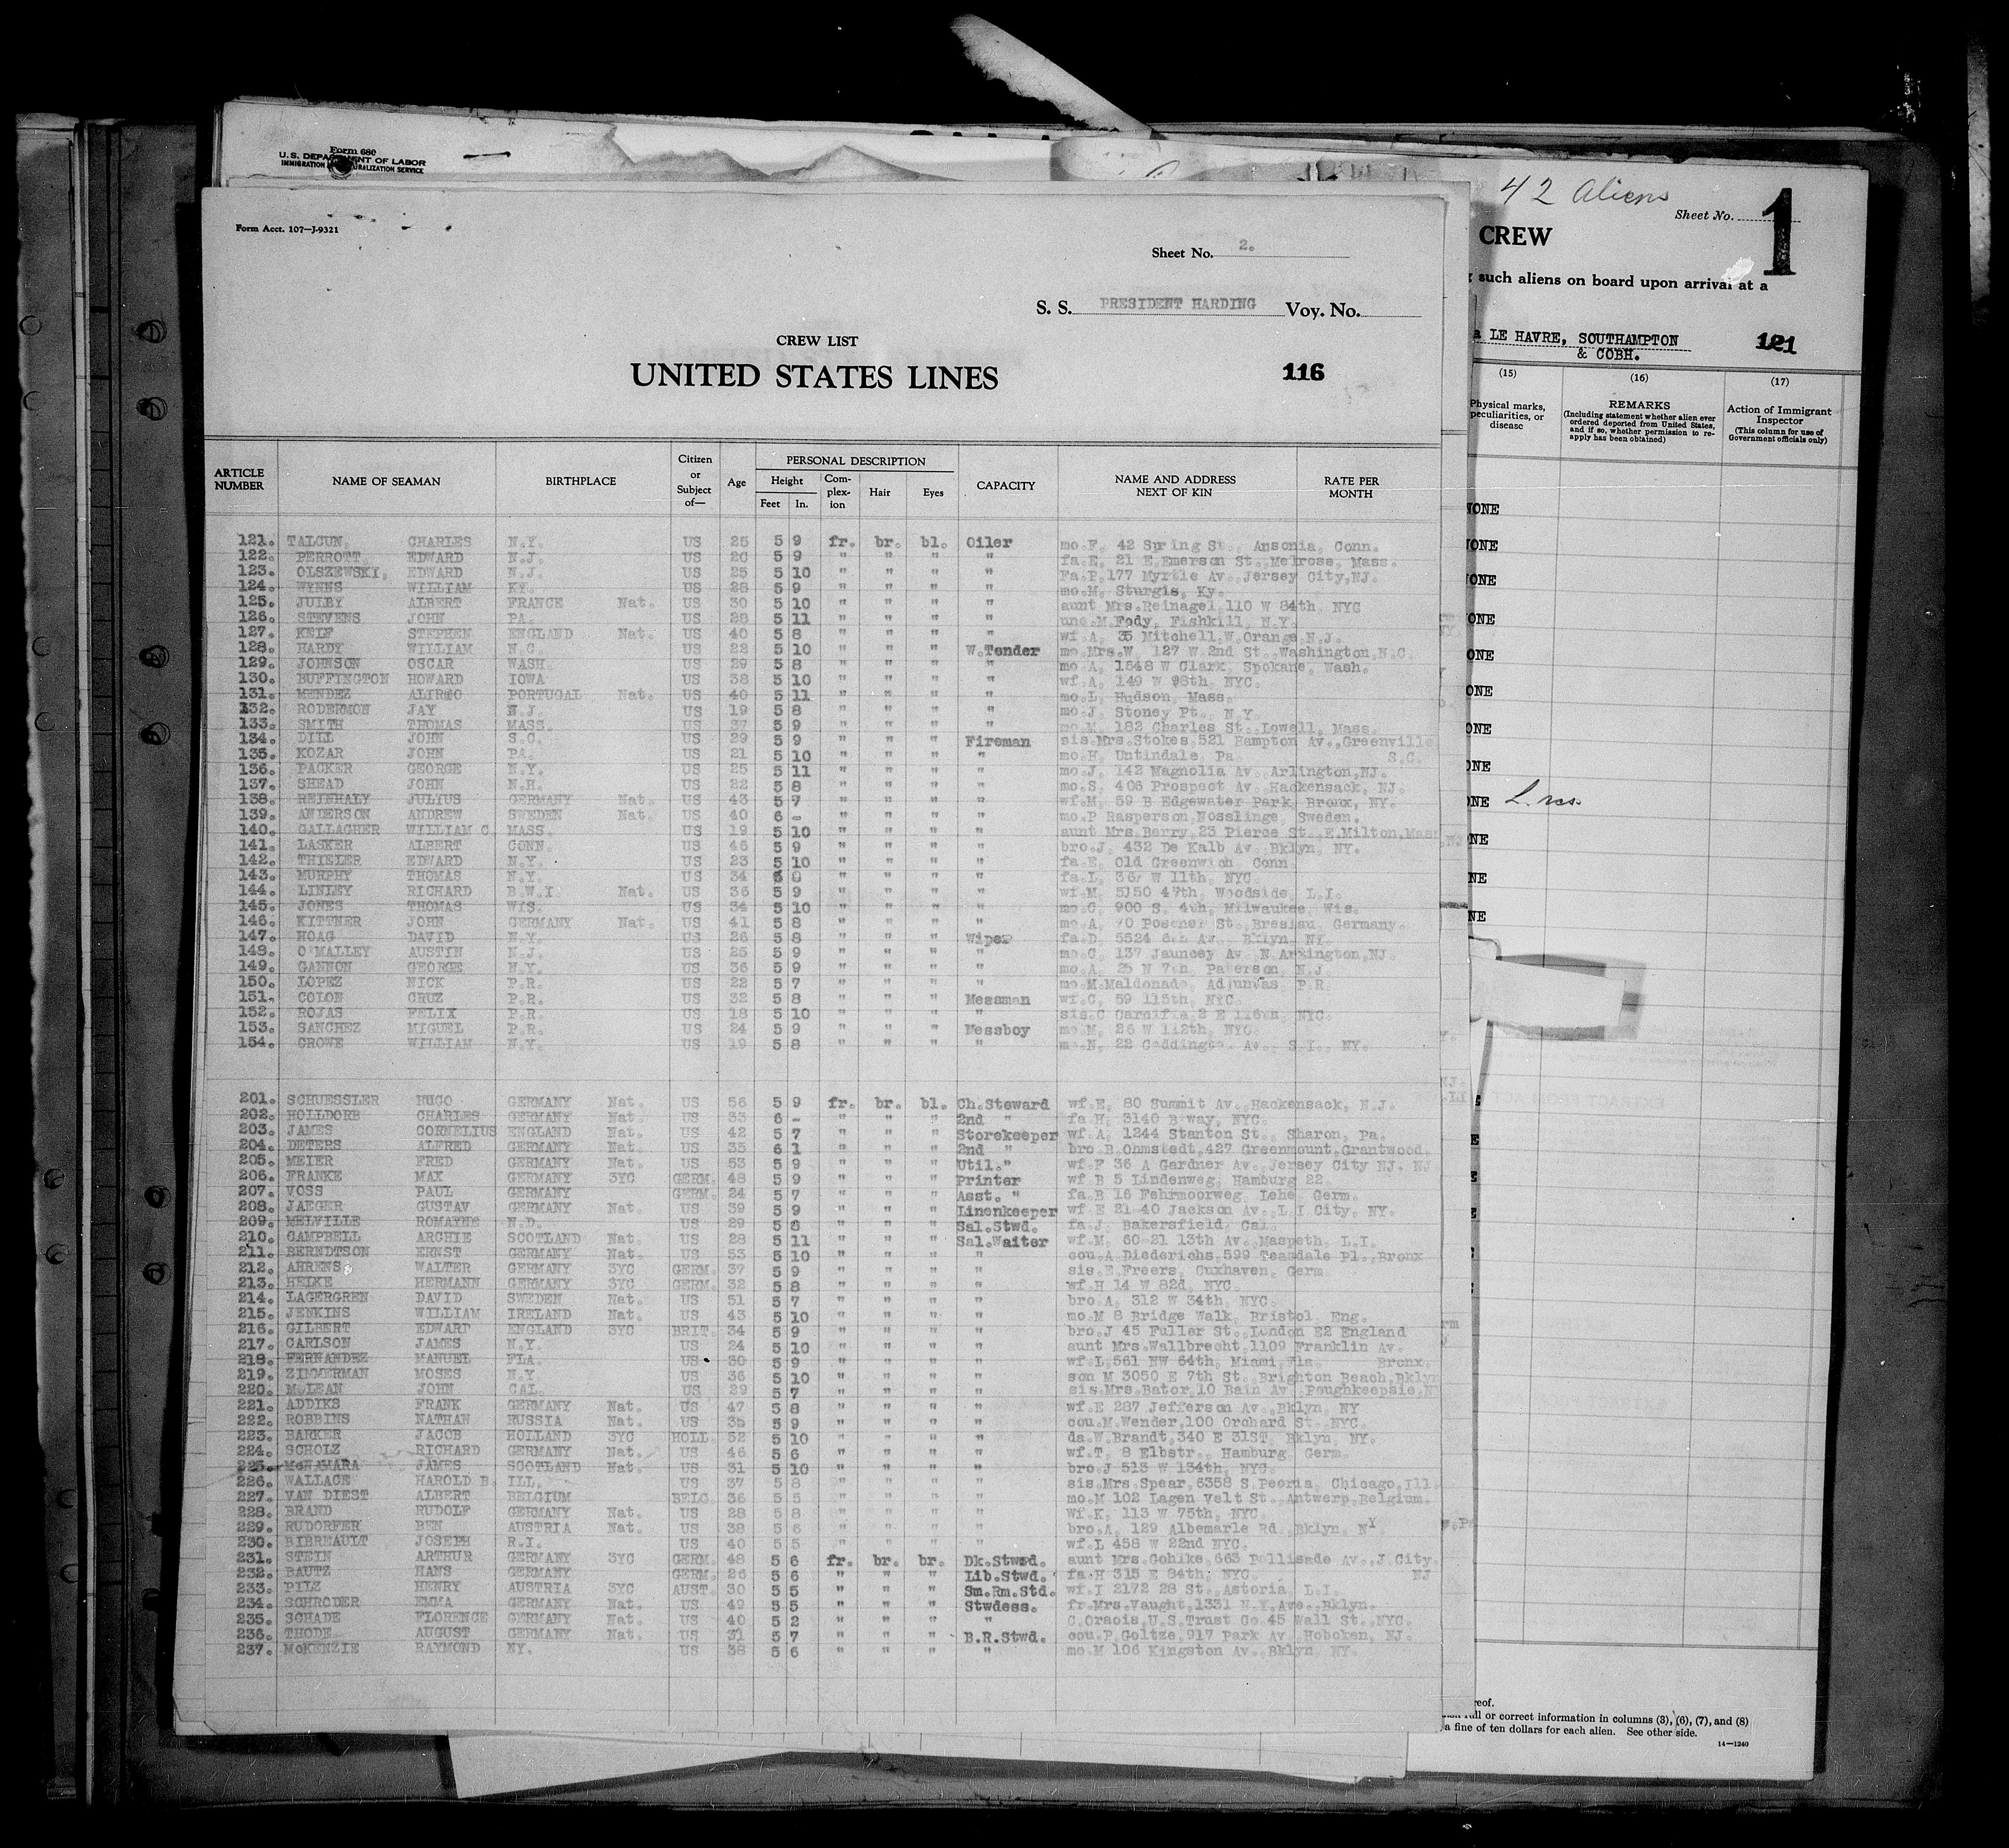 Form 680
U.S. DEPARTMENT OF LABOR
IMMIGRATION NATURALIZATION SERVICE
42 Aliens
Sheet No. 1
CREW
such aliens on board upon arrival at a
LE HAVRE, SOUTHAMPTON
& COBH.
121
(15) (16) (17)
Physical marks, peculiarities, or disease
REMARKS
(Including statement whether alien ever ordered deported from United States, and if so, whether permission to reapply has been obtained)
Action of Immigrant Inspector
(This column for use of Government officials only)
Form Acct. 107—J-9321
Sheet No. 2.
S. S. PRESIDENT HARDING Voy. No.
CREW LIST
UNITED STATES LINES
116
ARTICLE NUMBER NAME OF SEAMAN BIRTHPLACE Citizen or Subject of— Age PERSONAL DESCRIPTION Height Feet In. Complexion Hair Eyes CAPACITY NAME AND ADDRESS NEXT OF KIN RATE PER MONTH
121. TALCUN, CHARLES N.Y. US 25 5 9 fr. br. bl. Oiler mo.F, 42 Spring St., Ansonia, Conn.
122. PERROTT, EDWARD N.J. US 26 5 9 " " " " fa.E, 21 E.Emerson St., Melrose, Mass.
123. OLSZEWSKI, EDWARD N.J. US 25 5 10 " " " " Fa.P,177 Myrtle Av.,Jersey City,NJ.
124. WYNNS WILLIAM KY. US 28 5 9 " " " " mo.M, Sturgis, Ky.
125. JULBY ALBERT FRANCE Nat. US 30 5 10 " " " " aunt Mrs.Reinagel,110 W 84th, NYC
126. STEVENS JOHN PA. US 28 5 11 " " " " unc.M.Fody, Fishkill, N.Y.
127. KEIF STEPHEN ENGLAND Nat. US 40 5 8 " " " " wf.A, 35 Mitchell,W.Orange,N.J.
128. HARDY WILLIAM N.C. US 22 5 10 " " " W.Tender mo.Mrs.W, 127 W.2nd St.,Washington,N.C.
129. JOHNSON OSCAR WASH. US 29 5 8 " " " " mo.A, 1648 W Clark, Spokane, Wash.
130. BUFFINGTON HOWARD IOWA US 38 5 10 " " " " wf.A, 149 W 98th, NYC.
131. MENDEZ PORTUGAL Nat. US 40 5 11 " " " " mo.L, Hudson, Mass.
132. RODERMON JAY N.J. US 19 5 8 " " " " mo.J, Stoney Pt., N.Y.
133. SMITH THOMAS MASS. US 37 5 9 " " " " mo.M, 182 Charles St.,Lowell, Mass.
134. DILL JOHN S.C. US 29 5 9 " " " Fireman sis.Mrs.Stokes,521 Hampton Av.,Greenville
135. KOZAR JOHN PA. US 21 5 10 " " " " mo.H, Untindale, Pa. S.C.
136. PACKER GEORGE N.Y. US 25 5 11 " " " " mo.J, 142 Magnolia Av.,Arlington,NJ.
137. SHEAD JOHN N.H. US 22 5 8 " " " " mo.S, 406 Prospect Av, Hackensack, NJ.
138. REINHALY JULIUS GERMANY Nat. US 43 5 7 " " " " wf.M, 59 B Edgewater Park, Bronx, NY.
139. ANDERSON ANDREW SWEDEN Nat. US 40 6 - " " " " mo.P Rasperson,Nosslinge, Sweden.
140. GALLAGHER WILLIAM C. MASS. US 19 5 10 " " " " aunt Mrs.Berry,23 Pierce St.,E.Milton,Mass
141. LASKER ALBERT CONN. US 46 5 9 " " " " bro.J, 432 De Kalb Av.,Bklyn, NY.
142. THIELER EDWARD N.Y. US 23 5 10 " " " " fa.E, Old Greenwich, Conn.
143. MURPHY THOMAS N.Y. US 34 " " " " fa.L, 367 W 11th, NYC.
144. LINLEY RICHARD B.W.I Nat. US 36 5 9 " " " " wf.M, 5150 47th, Woodside, L.I.
145. JONES THOMAS WIS. US 34 5 10 " " " " mo.C, 900 S. 4th, Milwaukee, Wis.
146. KITTNER JOHN GERMANY Nat. US 41 5 8 " " " " mo.A, 70 Posener St.,Breslau, Germany.
147. HOAG DAVID N.Y. US 26 5 8 " " " Wiper fa.D, 5524 6th Av., Bklyn, NY.
148. O'MALLEY AUSTIN N.J. US 25 5 9 " " " " mo.C, 137 Jauncey Av.,N.Arlington,NJ.
149. GANNON GEORGE N.Y. US 36 5 9 " " " " mo.A, 25 N 7th, Paterson, N.J.
150. LOPEZ NICK P.R. US 22 5 7 " " " " mo.M.Maldonado, Adjuntas, P.R.
151. COLON CRUZ P.R. US 32 5 8 " " " Messman wf.C, 59 115th, NYC.
152. ROJAS FELIX P.R. US 18 5 10 " " " " sis.C 2 E 116th, NYC.
153. SANCHEZ MIGUEL P.R. US 24 5 9 " " " Messboy mo.M, 26 W 112th, NYC.
154. CROWE WILLIAM N.Y. US 19 5 8 " " " " mo.N, 22 Coddington Av., S.I., NY.
201. SCHUESSLER HUGO GERMANY Nat. US 56 5 9 fr. br. bl. Ch.Steward wf.E, 80 Summit Av.,Hackensack, N.J.
202. HOLLDORB CHARLES GERMANY Nat. US 33 6 - " " " 2nd " fa.H, 3140 B'way, NYC.
203. JAMES CORNELIUS ENGLAND Nat. US 42 5 7 " " " Storekeeper wf.A, 1244 Stanton St., Sharon, Pa.
204. DETERS ALFRED GERMANY Nat. US 35 6 1 " " " 2nd " bro.B.Ohmstedt,427 Greenmount,Grantwood.
205. MEIER FRED GERMANY Nat. US 53 5 9 " " " Util." wf.F 36 A Gardner Av.,Jersey City NJ. NJ
206. FRANKE MAX GERMANY 3YC GERM. 48 5 9 " " " Printer wf B 5 Lindenweg, Hamburg 22.
207. VOSS PAUL GERMANY GERM. 24 5 7 " " " Asst. " fa.B 16 Fehrmoorweg, Lehe, Germ.
208. JAEGER GUSTAV GERMANY Nat. US 39 5 9 " " " Linenkeeper wf E 21-40 Jackson Av.,L.I.City, NY.
209. MELVILLE ROMAYNE N.D. US 29 5 8 " " " Sal.Stwd. fa.J, Bakersfield, Cal.
210. CAMPBELL ARCHIE SCOTLAND Nat. US 28 5 11 " " " Sal.Waiter wf.M, 60-21 13th Av.,Maspeth, L.I.
211. BERNDTSON ERNST GERMANY Nat. US 53 5 10 " " " " cou.A.Diederichs,599 Teasdale Pl.,Bronx
212. AHRENS WALTER GERMANY 3YC GERM. 37 5 9 " " " " sis.E.Freers, Cuxhaven, Germ
213. HEIKE HERMANN GERMANY 3YC GERM. 32 5 8 " " " " wf.H 14 W 82d, NYC.
214. LAGERGREN DAVID SWEDEN Nat. US 51 5 7 " " " " bro.A, 312 W 34th, NYC.
215. JENKINS WILLIAM IRELAND Nat. US 43 5 10 " " " " mo.M 8 Bridge Walk, Bristol, Eng.
216. GILBERT EDWARD ENGLAND 3YC BRIT. 34 5 9 " " " " bro.J 45 Fuller St.,London E2 England
217. CARLSON JAMES N.Y. US 24 5 10 " " " " aunt Mrs.Wallbrecht,1109 Franklin Av.
218. FERNANDEZ MANUEL FLA. US 30 5 9 " " " " wf.L,561 NW 64th, Miami,Fla. Bronx.
219. ZIMMERMAN MOSES N.Y. US 36 5 10 " " " " son M 3050 E 7th St.,Brighton Beach,Bklyn
220. McLEAN JOHN CAL. US 29 5 7 " " " " sis.Mrs.Bator,10 Bain Av.,Poughkeepsie,N
221. ADDIKS FRANK GERMANY Nat. US 47 5 8 " " " " wf.E 287 Jefferson Av.,Bklyn, NY
222. ROBBINS NATHAN RUSSIA Nat. US 35 5 9 " " " " cou.M.Wender,100 Orchard St.,NYC.
223. BARKER JACOB HOLLAND 3YC HOLL. 52 5 10 " " " " da.W.Brandt,340 E 31ST, Bklyn, NY.
224. SCHOLZ RICHARD GERMANY Nat. US 46 5 6 " " " " wf.T, 8 Elbstr., Hamburg, Germ.
225. McNAMARA JAMES SCOTLAND Nat. US 31 5 10 " " " " bro.J 513 W 134th, NYC.
226. WALLACE HAROLD B. ILL. US 37 5 8 " " " " sis.Mrs.Spear,6358 S.Peoria, Chicago,Ill
227. VAN DIEST ALBERT BELGIUM BELG. 36 5 5 " " " " mo.M 102 Lagen Velt St.,Antwerp,Belgium.
228. BRAND RUDOLF GERMANY Nat. US 28 5 8 " " " " wf.K, 113 W 75th, NYC.
229. RUDORFER BEN AUSTRIA Nat. US 38 5 6 " " " " bro.A, 129 Albemarle Rd.,Bklyn, NY
230. BIBREAULT JOSEPH R.I. US 40 5 5 " " " " wf.L 458 W 22nd NYC.
231. STEIN ARTHUR GERMANY 3YC GERM. 48 5 6 fr. br. br. Dk.Stwd. aunt Mrs.Gohlke,663 Pallisade Av.,J.City.
232. BAUTZ HANS GERMANY GERM. 26 5 6 " " " Lib.Stwd. fa.H 315 E 84th, NYC. NJ
233. PILZ HENRY AUSTRIA 3YC AUST. 30 5 5 " " " Sm.Rm.Std. wf.I 2172 28 St.,Astoria, L.I.
234. SCHRODER EMMA GERMANY Nat. US 49 5 5 " " " Stwdess. fr.Mrs.Vaught,1331 N.Y.Ave.,Bklyn.
235. SCHADE FLORENCE GERMANY Nat. US 40 5 2 " " " " C.Oraois,U.S.Trust Co.45 Wall St.,NYC.
236. THODE AUGUST GERMANY Nat. US 31 5 7 " " " B.R.Stwd. cou.P.Goltze,917 Park Av.,Hoboken, NJ.
237. McKENZIE RAYMOND NY. US 38 5 6 " " " " mo.M 106 Kingston Av.,Bklyn, NY.
full or correct information in columns (3), (6), (7), and (8)
a fine of ten dollars for each alien. See other side.
14—1240